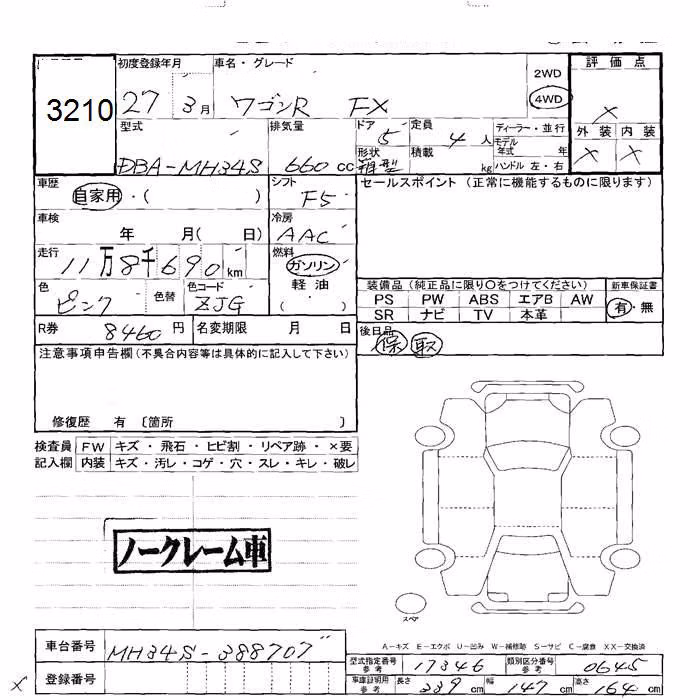 3210
初度登録年月 車名・グレード 2WD 評価点
27 3月 ワゴンR FX 4WD ×
型式 排気量 ドア 5 定員 4人 ディーラー・並行 外装 内装
DBA-MH34S 660cc 形状 箱型 積載 kg モデル年式 年 × ×
ハンドル 左・右
車歴 自家用・( ) シフト F5 セールスポイント (正常に機能するものに限ります)
車検 年 月( 日) 冷房 AAC
走行 11万8千690km 燃料 ガソリン
軽油
( ・ )
色 ピンク 色替 色コード ZJG
装備品 (純正品に限り○をつけてください) 新車保証書
PS PW ABS エアB AW 有・無
SR ナビ TV 本革
R券 8460円 名変期限 月 日 後日品 保 取
注意事項申告欄(不具合内容等は具体的に記入して下さい)
修復歴 有 〔箇所 〕
検査員 FW キズ・飛石・ヒビ割・リペア跡・×要
記入欄 内装 キズ・汚レ・コゲ・穴・スレ・キレ・破レ
ノークレーム車
スペア
A-キズ E-エクボ U-凹み W-補修跡 S-サビ C-腐食 XX-交換済
車台番号 MH34S-388707
登録番号
型式指定番号 参考 17346 類別区分番号 参考 0645
車庫証明用 参考 長さ 339cm 幅 147cm 高さ 164cm
×